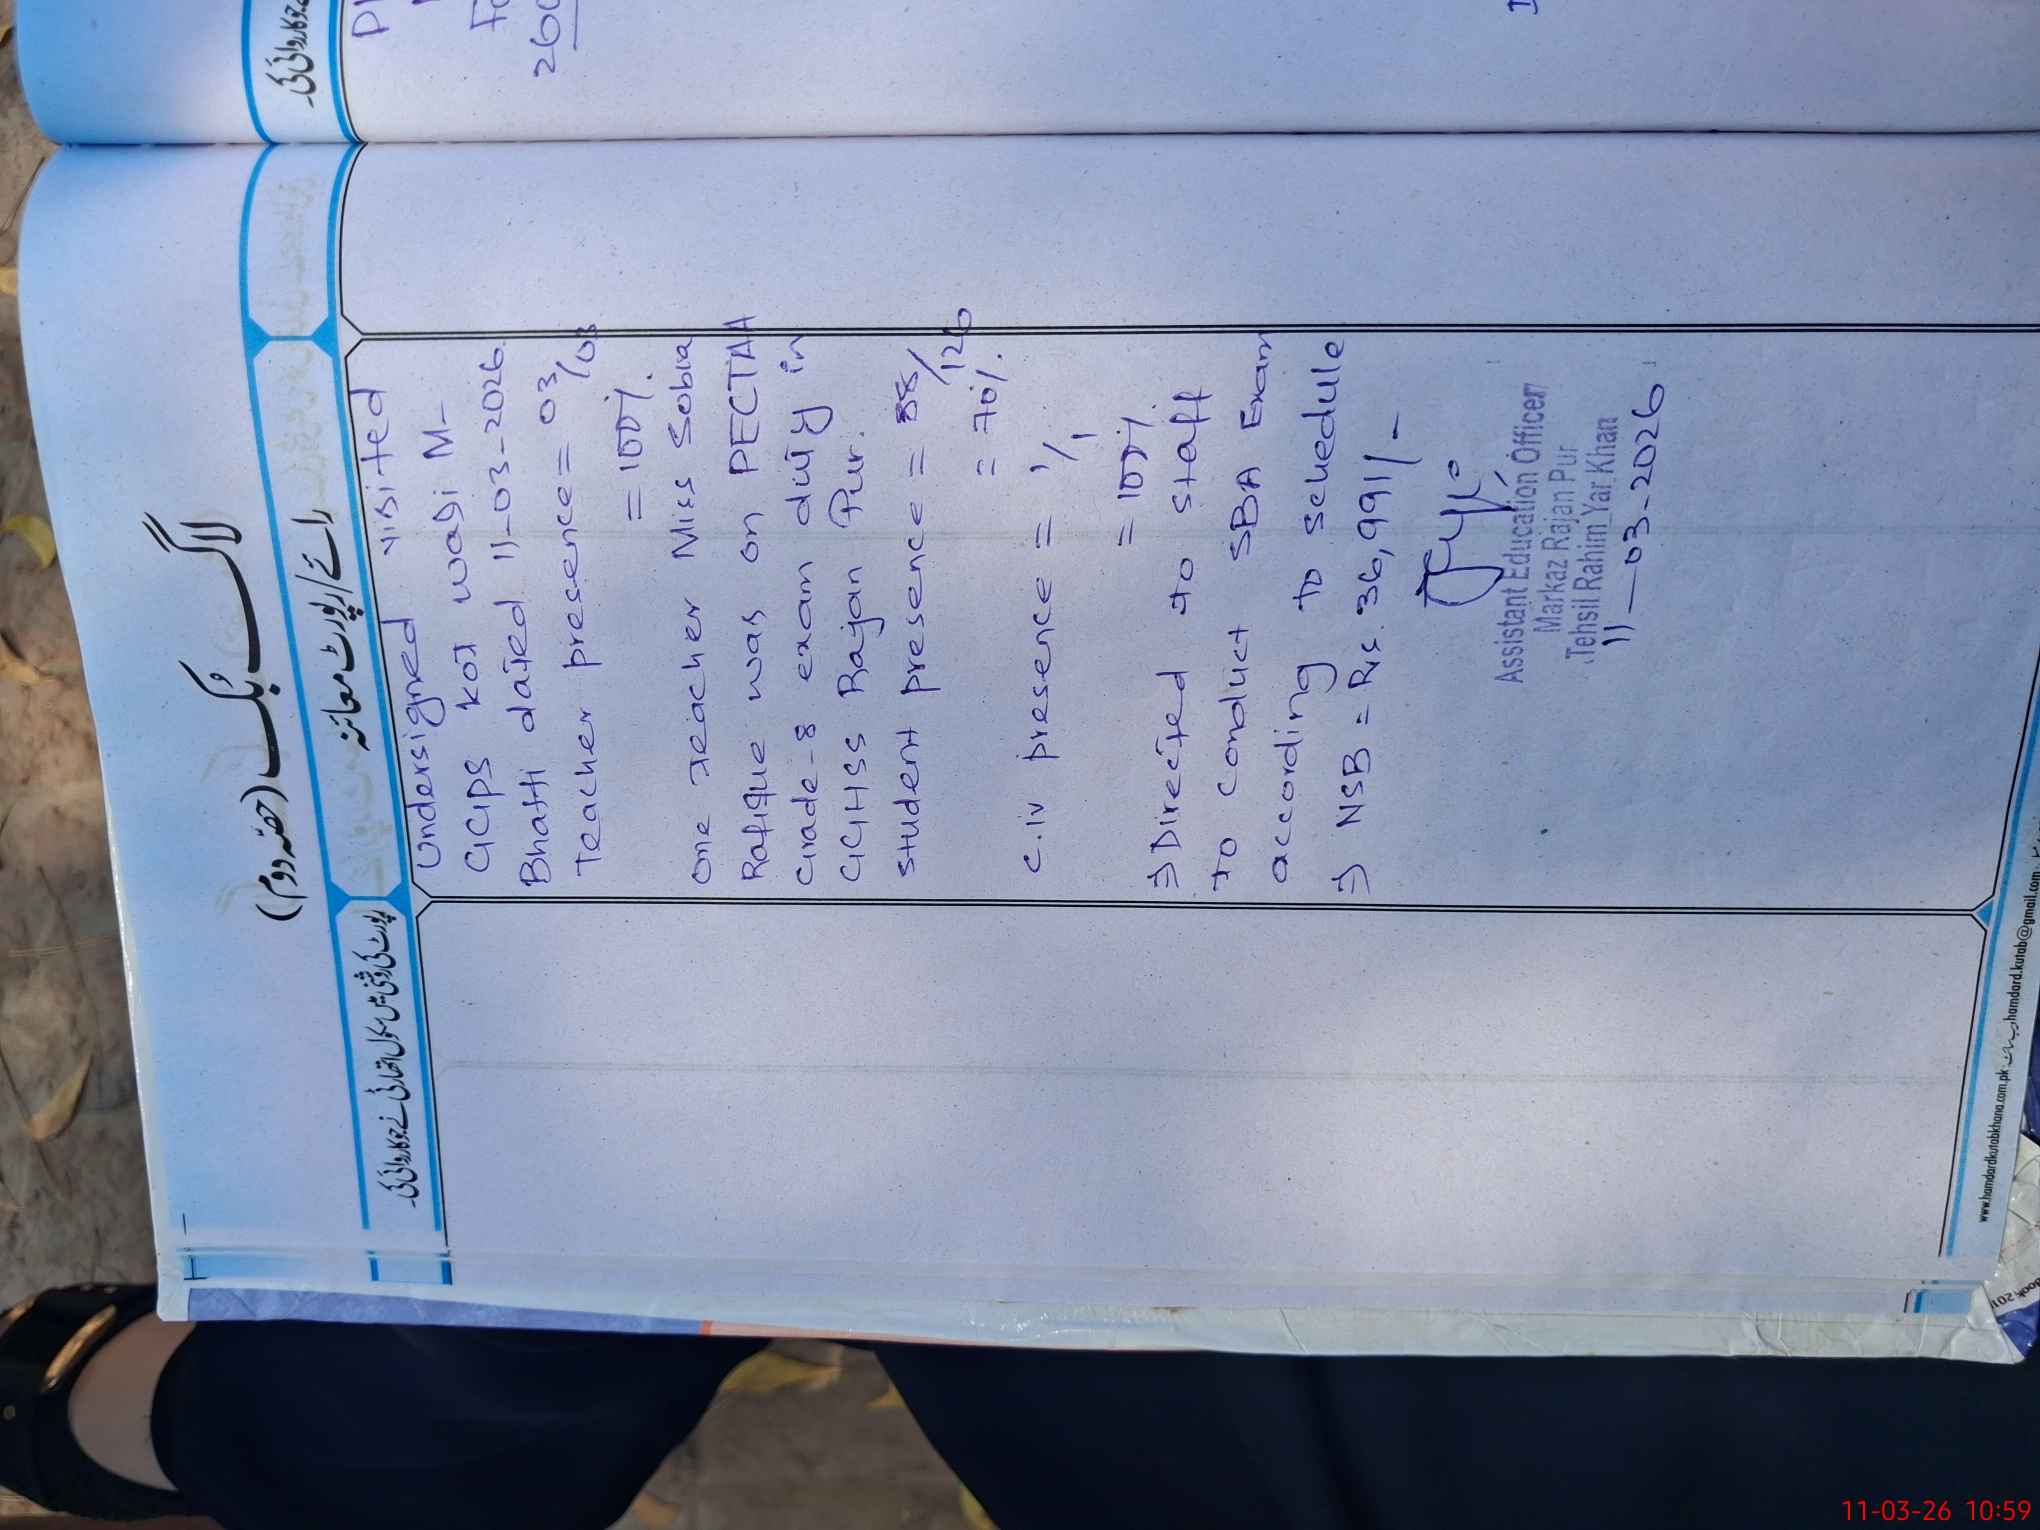 لاگ بک (حصّہ دوم)
رائے/رپورٹ معائنہ
رپورٹ کی روشنی میں سکول اتھارٹی نے جو کاروائی کی۔
Undersigned visited
GGPS Kot Wasi M-
Bhatti dated 11-03-2026.
Teacher presence = 03/03
= 100%.
One Teacher Miss Sobia
Rafique was on PECTAA
Grade-8 exam duty in
GGHSS Rajan Pur.
Student presence = 88/126
= 70%.
C.iv presence = 1/1
= 100%.
⇒ Directed to staff
to conduct SBA Exam
according to schedule
⇒ NSB = Rs. 36,991/-
Assistant Education Officer
Markaz Rajan Pur
Tehsil Rahim Yar Khan
11-03-2026
www.hamdardkutabkhana.com.pk
hamdard.kutab@gmail.com
جو کاروائی کی۔
260
11-03-26 10:59